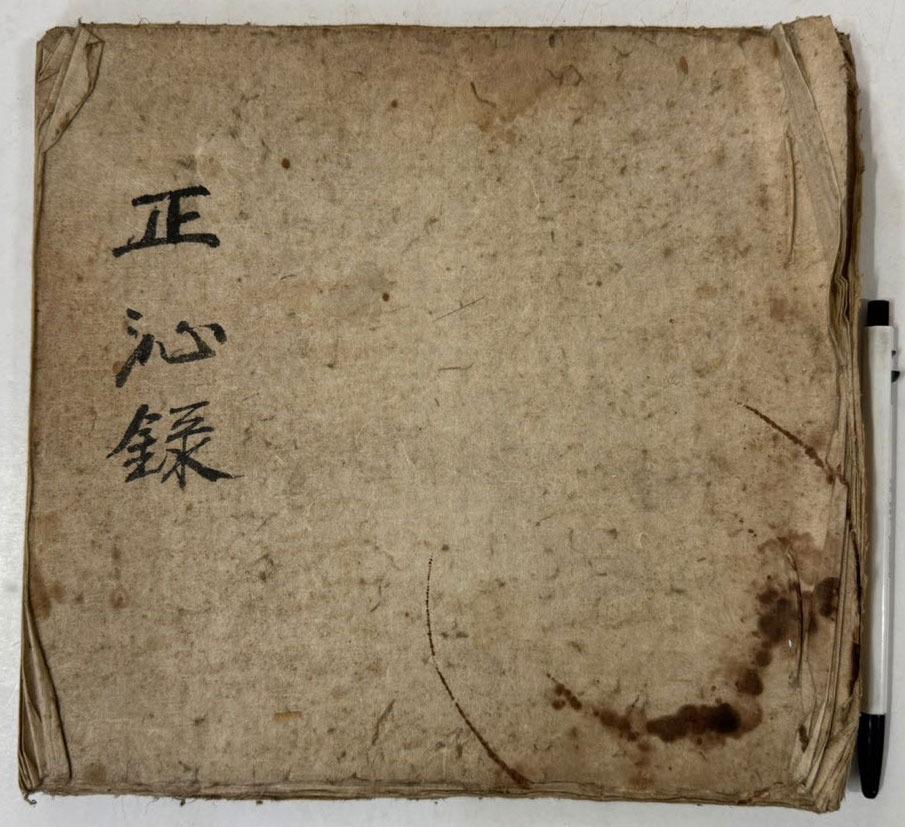 正沁錄